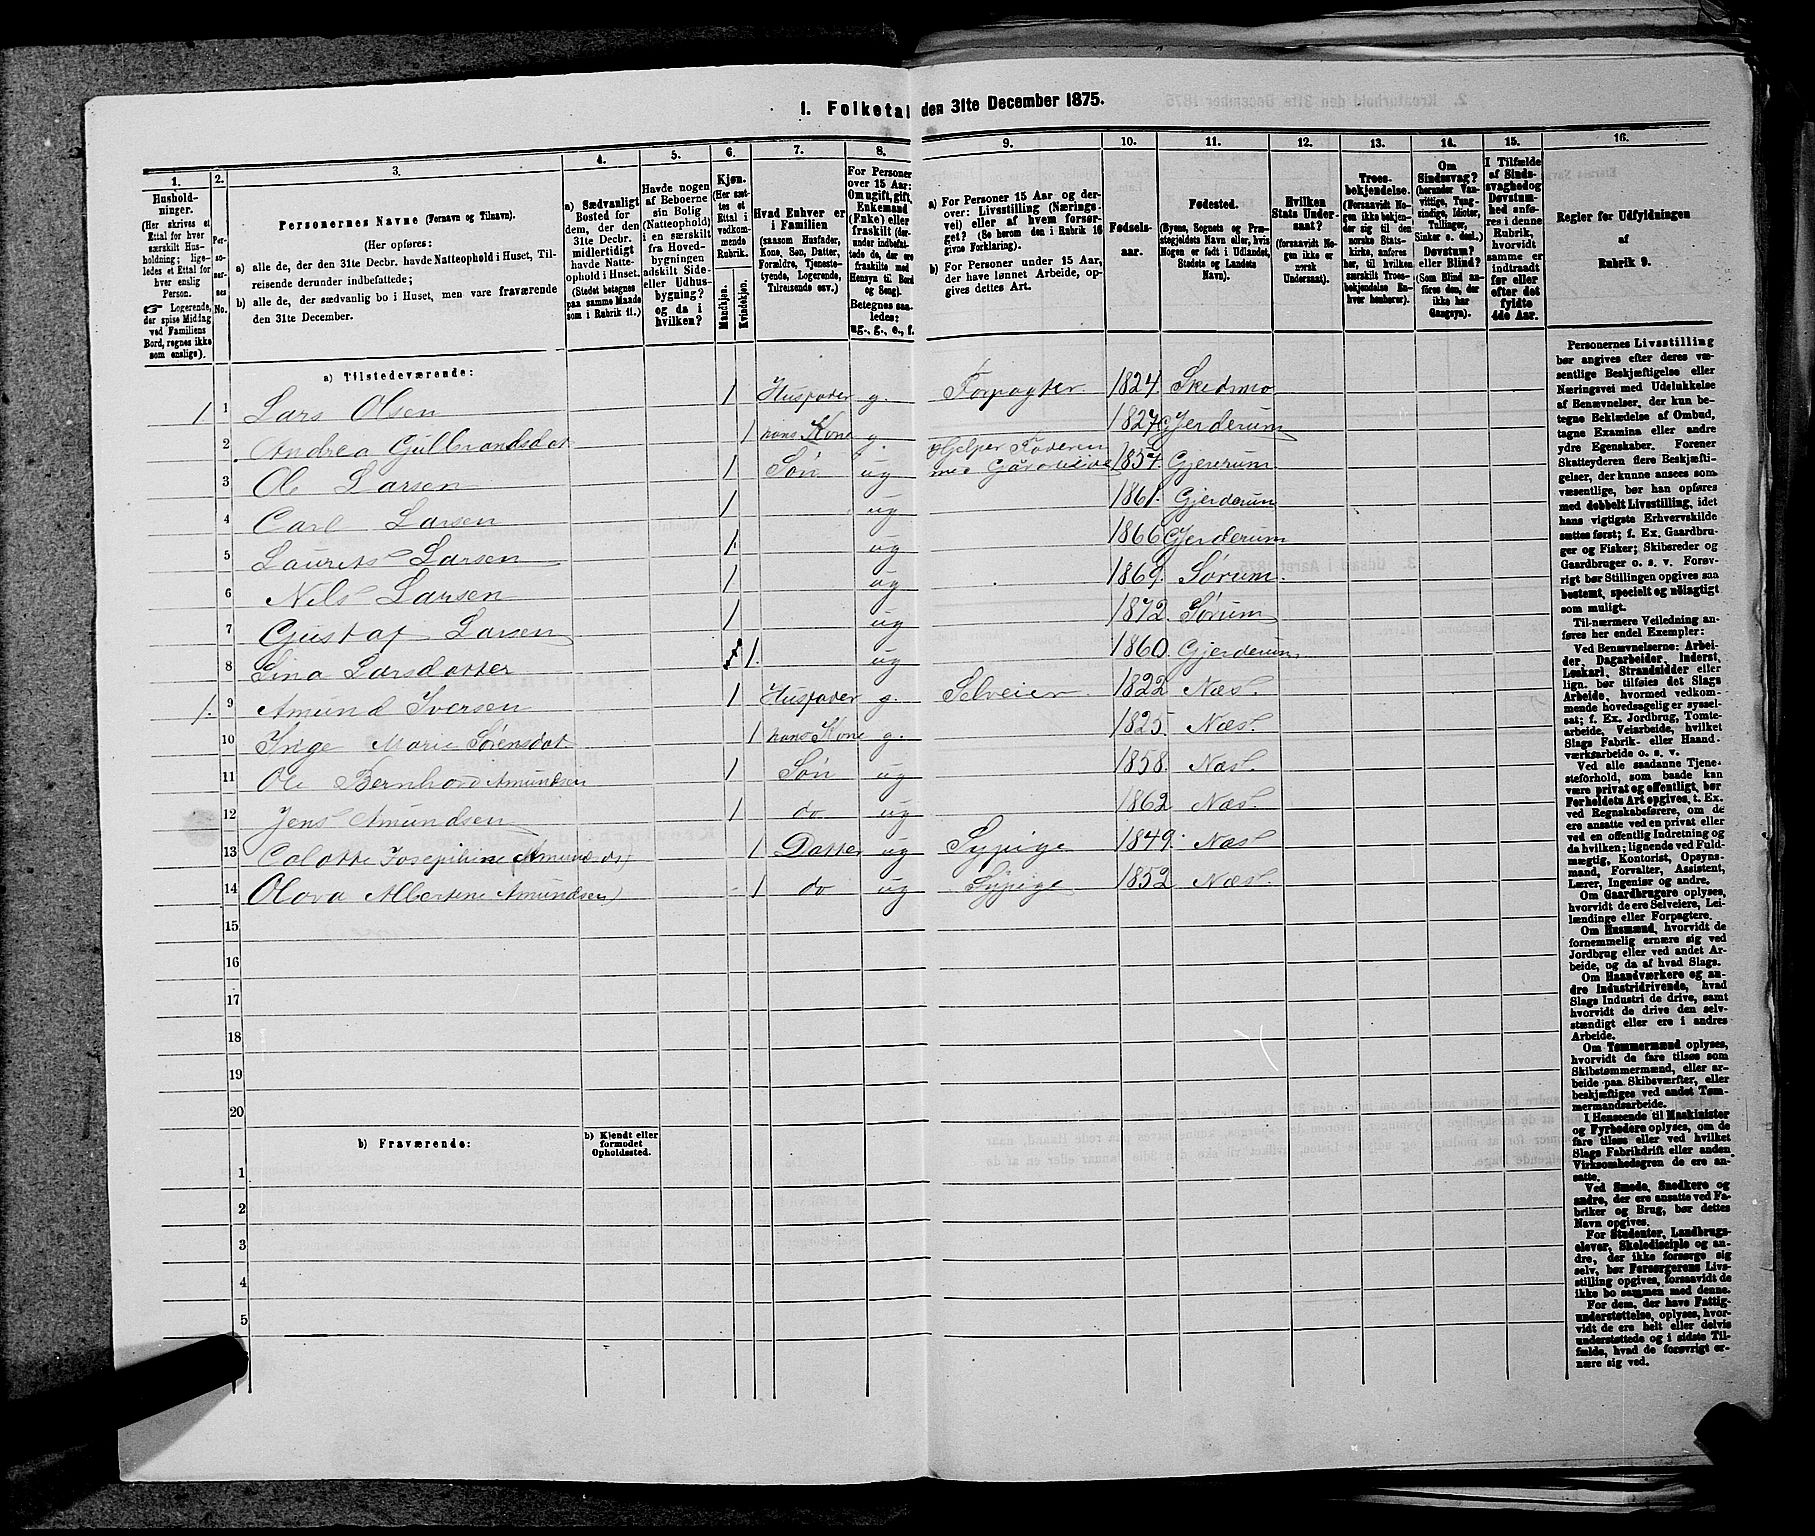 1. Folketal den 31te December 1875.
1. 2. 3. 4. 5. 6. 7. 8. 9. 10. 11. 12. 13. 14. 15. 16.
Husholdninger. (Her skrives et Ettal for hver særskilt Husholdning; ligeledes et Ettal for hver enslig Person. ☞ Logerende, der spise Middag ved Familiens Bord, regnes ikke som enslige).
Personernes No.
Personernes Navne (Fornavn og Tilnavn).
(Her opføres:
a) alle de, der den 31te Decbr. havde Natteophold i Huset, Tilreisende derunder indbefattede;
b) alle de, der sædvanlig bo i Huset, men vare fraværende den 31te December.
a) Sædvanligt Bosted for dem, der den 31te Decbr. midlertidigt havde Natteophold i Huset. (Stedet betegnes paa samme Maade som i Rubrik 11.)
Havde nogen af Beboerne sin Bolig (Natteophold) i en særskilt fra Hovedbygningen adskilt Side- eller Udhusbygning? og da i hvilken?
Kjøn. (Her sættes et Ettal i vedkommende Rubrik.
Mandkjøn. Kvindekjøn.
Hvad Enhver er i Familien (saasom Husfader, Kone, Søn, Datter, Forældre, Tjenestetyende, Logerende, Tilreisende osv.)
For Personer over 15 Aar: Om ugift, gift, Enkemand (Enke) eller fraskilt (derunder indbefattede de, der ere fraskilte med Hensyn til Bord og Seng). Betegnes saaledes: ug., g., e., f.
a) For Personer 15 Aar og derover: Livsstilling (Næringsvei) eller af hvem forsørget? (Se herom den i Rubrik 16 givne Forklaring).
b) For Personer under 15 Aar, der have lønnet Arbeide, opgives dettes Art.
Fødselsaar.
Fødested. (Byens, Sognets og Præstegjeldets Navn eller, hvis Nogen er født i Udlandet, Stedets og Landets Navn).
Hvilken Stats Undersaat? (forsaavidt Nogen ikke er norsk Undersaat).
Troesbekjendelse. (Forsaavidt Nogen ikke bekjender sig til den norske Statskirke, anføres her, til hvilken særskilt Troesbekjendelse Enhver henhører).
Om Sindssvag? (herunder Vanvittige, Tungsindige, Idioter, Tullinger, Sinker o. desl.) Døvstum? eller Blind? (Som Blind anføres den, der ikke har Gangsyn).
I Tilfælde af Sindssvaghed og Døvstumhed anføres i denne Rubrik, hvorvidt samme er indtraadt før eller efter det fyldte 4de Aar.
Regler for Udfyldningen af Rubrik 9.
a) Tilstedeværende:
1 1 Lars Olsen 1 Husfader g. Forpagter. 1824. Skedsmo
2 Andrea Gulbrandsdat 1 hans Kone g. 1827 Gjerderum
3 Ole Larsen 1 Søn ug Hjelper Faderen med 1857. Gjererum
4 Carl Larsen 1 ug 1861. Gjerderum
5 Laurits Larsen 1 ug 1866 Gjerderum
6 Nils Larsen 1 ug 1869. Sørum.
7 Gustaf Larsen 1 ug 1872. Sørum
8 Lina Larsdatter 1. ug 1860. Gjerderum
1. 9 Amund Iversen 1 Husfader g. Selveier 1822 Næs.
10 Inge Marie Sørensdat 1 hans Kone g. 1825. Næs.
11 Ole Bernhard Amundsen 1 Søn ug 1858. Næs.
12 Jens Amundsen 1 do ug 1862 Næs.
13 Calotte Josephine Amunds 1 Datter ug Sypige 1849. Næs
14 Olava Albertine Amundsen 1 do ug Sypige 1852 Næs.
15
16
17
18
19
20
b) Fraværende:
b) Kjendt eller formodet Opholdssted.
1
2
3
4
5
Personernes Livsstilling
bør angives efter deres væ-
sentlige Beskjæftigelse eller
Næringsvei med Udelukkelse
af Benævnelser, der kun be-
tegne Beklædelse af Ombud,
tagne Examina eller andre
ydre Egenskaber. Forener
Skatteyderen flere Beskjæfti-
gelser, der kunne ansees som
væsentlige, bør han opføres
med dobbelt Livsstilling, idet
hans vigtigste Erhvervskilde
sættes først; f. Ex. Gaardbru-
ger og Fisker; Skibsreder og
Gaardbruger o. s. v. Forøv-
rigt bør Stillingen opgives saa
bestemt, specielt og nøiagtigt
som muligt.
Til nærmere Veiledning an-
føres her endel Exempler:
Ved Benævnelserne: Arbei-
der, Dagarbeider, Inderst,
Løskarl, Strandsidder eller
lign. bør tilføies det Slags
Arbeide, hvormed vedkom-
mende hovedsagelig er syssel-
sat; f. Ex. Jordbrug, Tomte-
arbeide, Veiarbeide, hvilket
Slags Fabrik- eller Haand-
værksarbeide o. s. v.
Ved alle saadanne Tjene-
steforhold, som baade kan
være privat og offentligt, bør
Forholdets Art opgives, t. Ex.
ved Regnskabsførere, om de
ere ansatte ved en privat eller
ved en offentlig Indretning og
da hvilken; lignende ved Fuld-
mægtig, Kontorist, Opsyns-
mand, Forvalter, Assistent,
Lærer, Ingeniør og andre.
Om Gaardbrugere oplyses,
hvorvidt de ere Selveiere, Lei-
lændinge eller Forpagtere.
Om Husmænd, hvorvidt de
fornemmelig ernære sig ved
Jordbrug eller ved andet Ar-
beide, og da af hvad Slags.
Om Haandværkere og an-
dre Industridrivende, hvad
Slags Industri de drive, samt
hvorvidt de drive den selv-
stændigt eller ere i andres
Arbeide.
Om Tømmermænd oplyses,
hvorvidt de fare tilsøs som
Skibstømmermænd, eller ar-
beide paa Skibsværfter, eller
beskjæftiges ved andet Tøm-
mermandsarbeide.
I Henseende til Maskinister
og Fyrbødere oplyses, om de
fare tilsøs eller ved hvilket
Slags Fabrikdrift eller anden
Virksomhedsgren de ere an-
satte.
Ved Smede, Snedkere og
andre, der ere ansatte ved Fa-
briker og Brug, bør dettes
Navn opgives.
For Studenter, Landbrugs-
elever, Skoledisciple og an-
dre, der ikke forsørge sig
selv, bør Forsørgerens Livs-
stilling opgives, forsaavidt de
ikke bo sammen med denne.
For dem, der have Fattig-
understøttelse, oplyses, hvor-
vidt de ere helt eller delvis
understøttede og i sidste Til-
fælde, hvad de forøvrigt er-
nære sig ved.